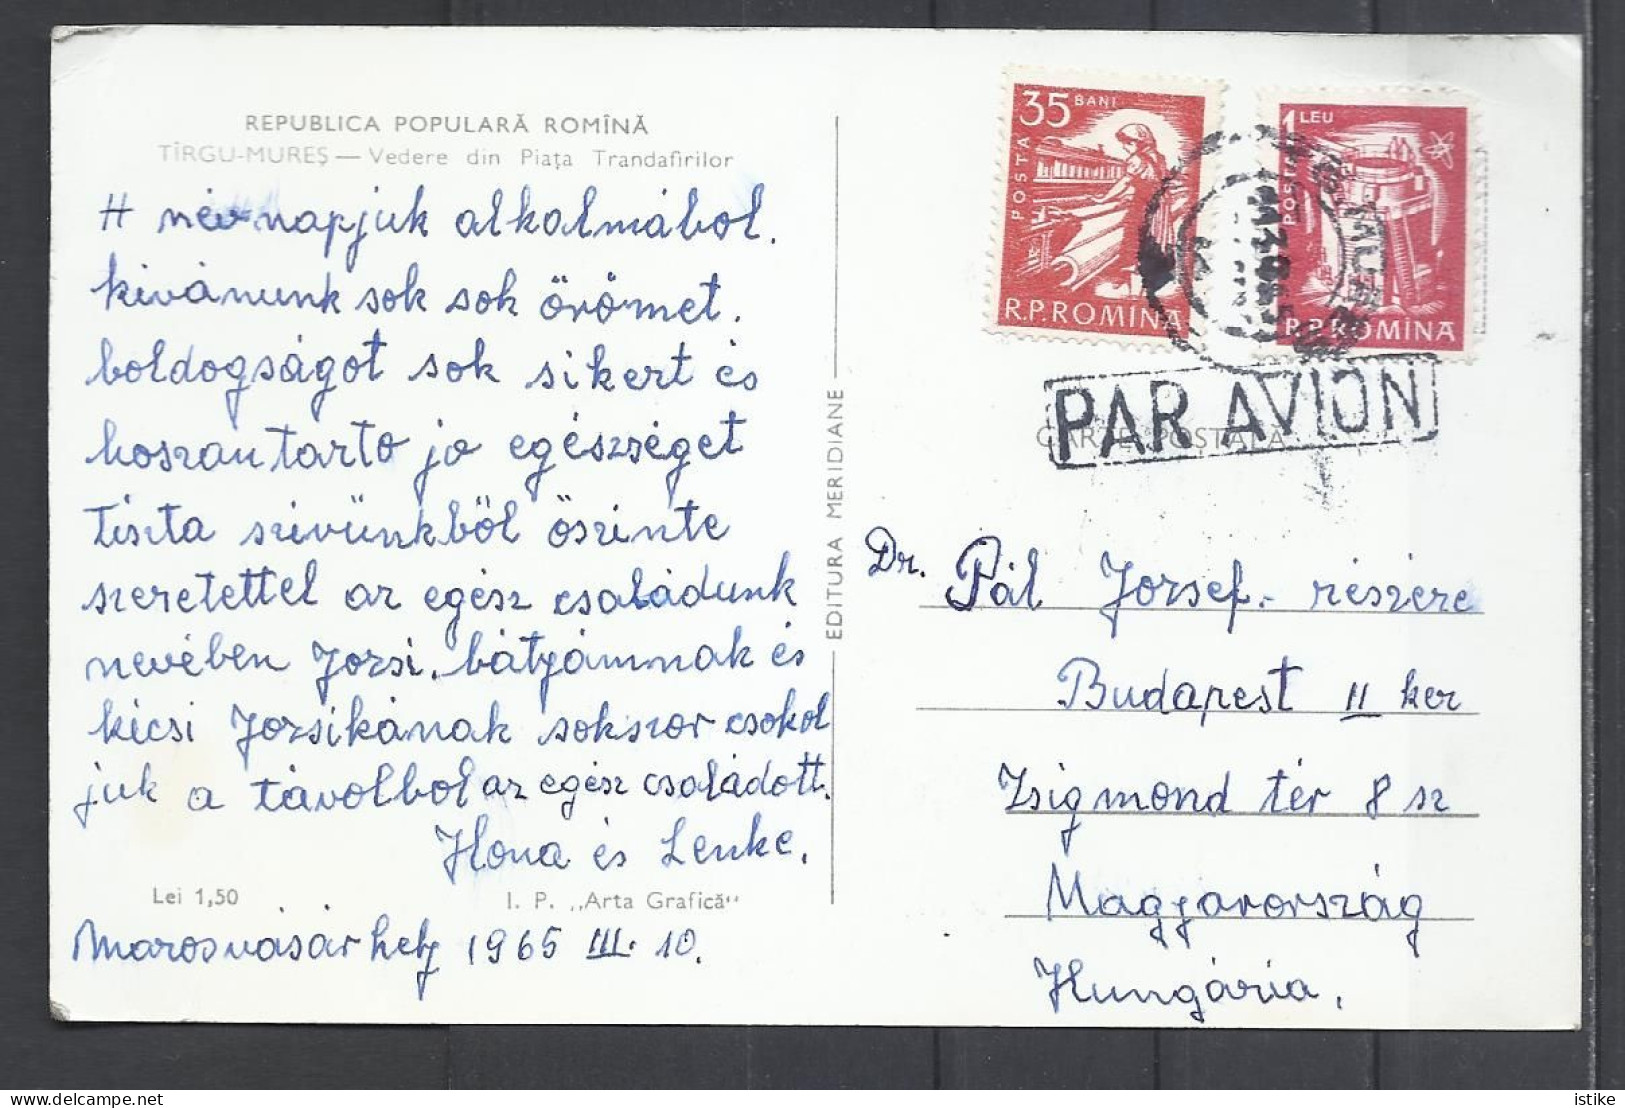 REPUBLICA POPULARĂ ROMÎNĂ
TÎRGU-MUREŞ — Vedere din Piaţa Trandafirilor
A névnapjuk alkalmábol.
kivánunk sok sok örömet.
boldogságot sok sikert és
hoszantarto jo egészséget
Tiszta szivünkböl öszinte
szeretettel az egész családunk
nevében Jozsi. bátyámnak és
kicsi Jozsikának sokszor csokol
juk a távolbol az egész családott.
Ilona és Lenke.
Lei 1,50
I. P. „Arta Grafică“
Marosvásárhely 1965 III. 10.
EDITURA MERIDIANE
35 BANI
POSTA
R.P.ROMINA
1 LEU
POSTA
R.P.ROMÎNA
PAR AVION
CARTE POSTALA
Dr. Pál Jozsef. részére
Budapest II ker
Zsigmond tér 8 sz
Magyarország
Hungária.
istike